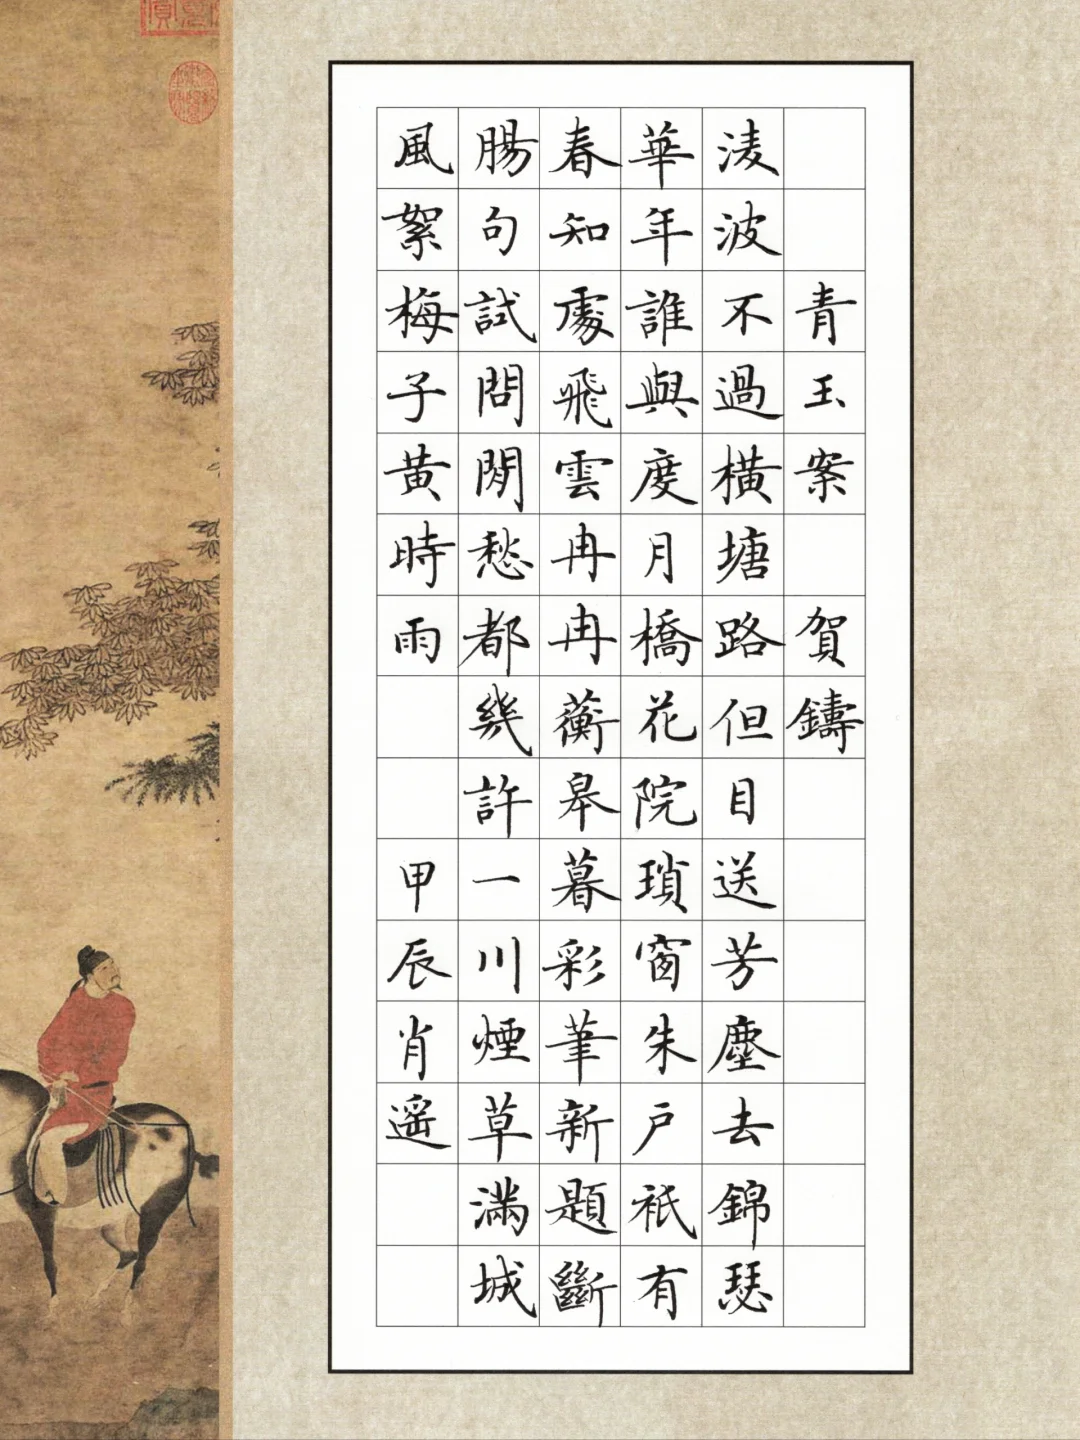 青玉案 賀鑄
淩波不過橫塘路但目送芳塵去錦瑟
華年誰與度月橋花院瑣窗朱戶祇有
春知處飛雲冉冉蘅皋暮彩筆新題斷
腸句試問閒愁都幾許一川煙草滿城
風絮梅子黃時雨 甲辰肖遥